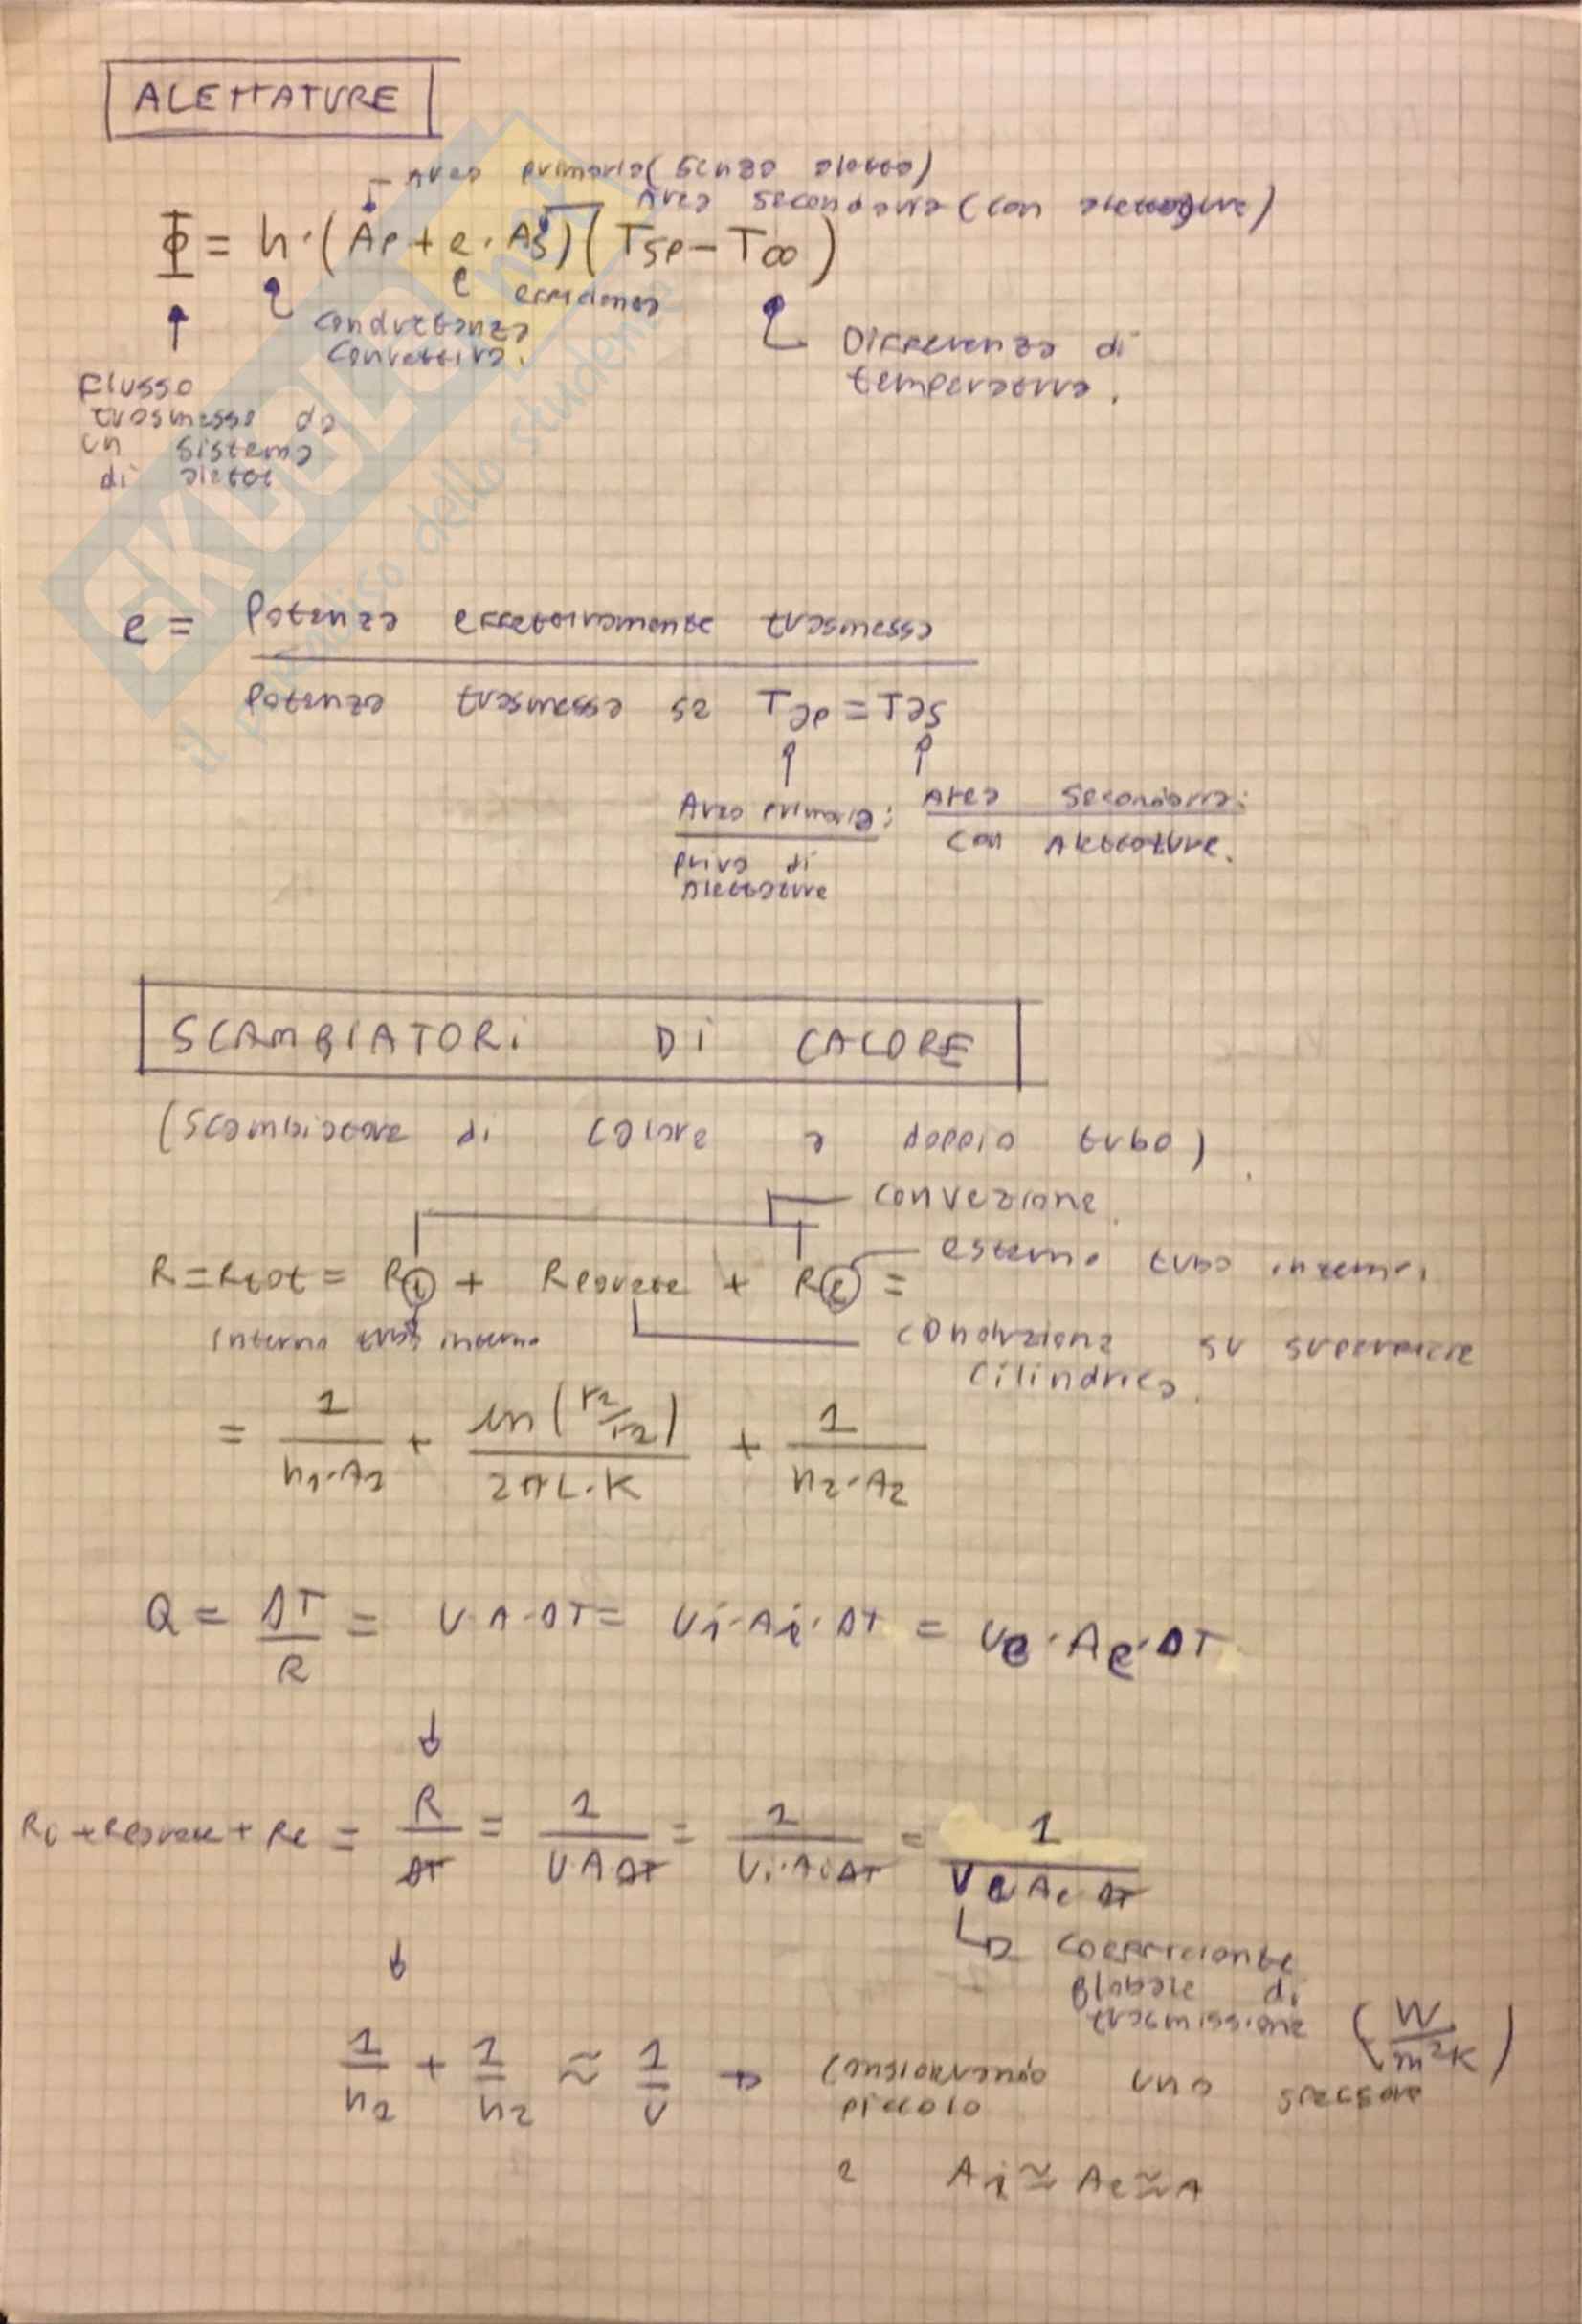 ALETTATURE
Area primaria (senza aletta)
Area secondaria (con alettature)
Φ = h·(Ap + e·As)(Tsp − T∞)
efficienza
conduttanza
convettiva.
Differenza di
temperatura.
flusso
trasmesso da
un sistema
di alette
e = Potenza effettivamente trasmessa
Potenza trasmessa se Tap = Tas
Area primaria: Area Secondaria:
priva di con Alettature.
Alettature
SCAMBIATORi Di CALORE
(Scambiatore di calore a doppio tubo)
convezione
esterno tubo interno.
R = Rtot = Ri + Rparete + Re =
interno tubo interno
conduzione su superficie
cilindrica.
= 1/(h1·A1) + ln(r2/r1)/(2πL·K) + 1/(h2·A2)
Q = ΔT/R = U·A·ΔT = Ui·Ai·ΔT = Ue·Ae·ΔT
↓
Ri + Rparete + Re = R/ΔT = 1/(U·A ΔT) = 1/(Ui·Ai ΔT) = 1/(Ue·Ae ΔT)
↓
coefficiente
globale di
trasmissione (W/m²K)
1/h1 + 1/h2 ≈ 1/U → considerando uno spessore
piccolo
e Ai ≃ Ae ≃ A